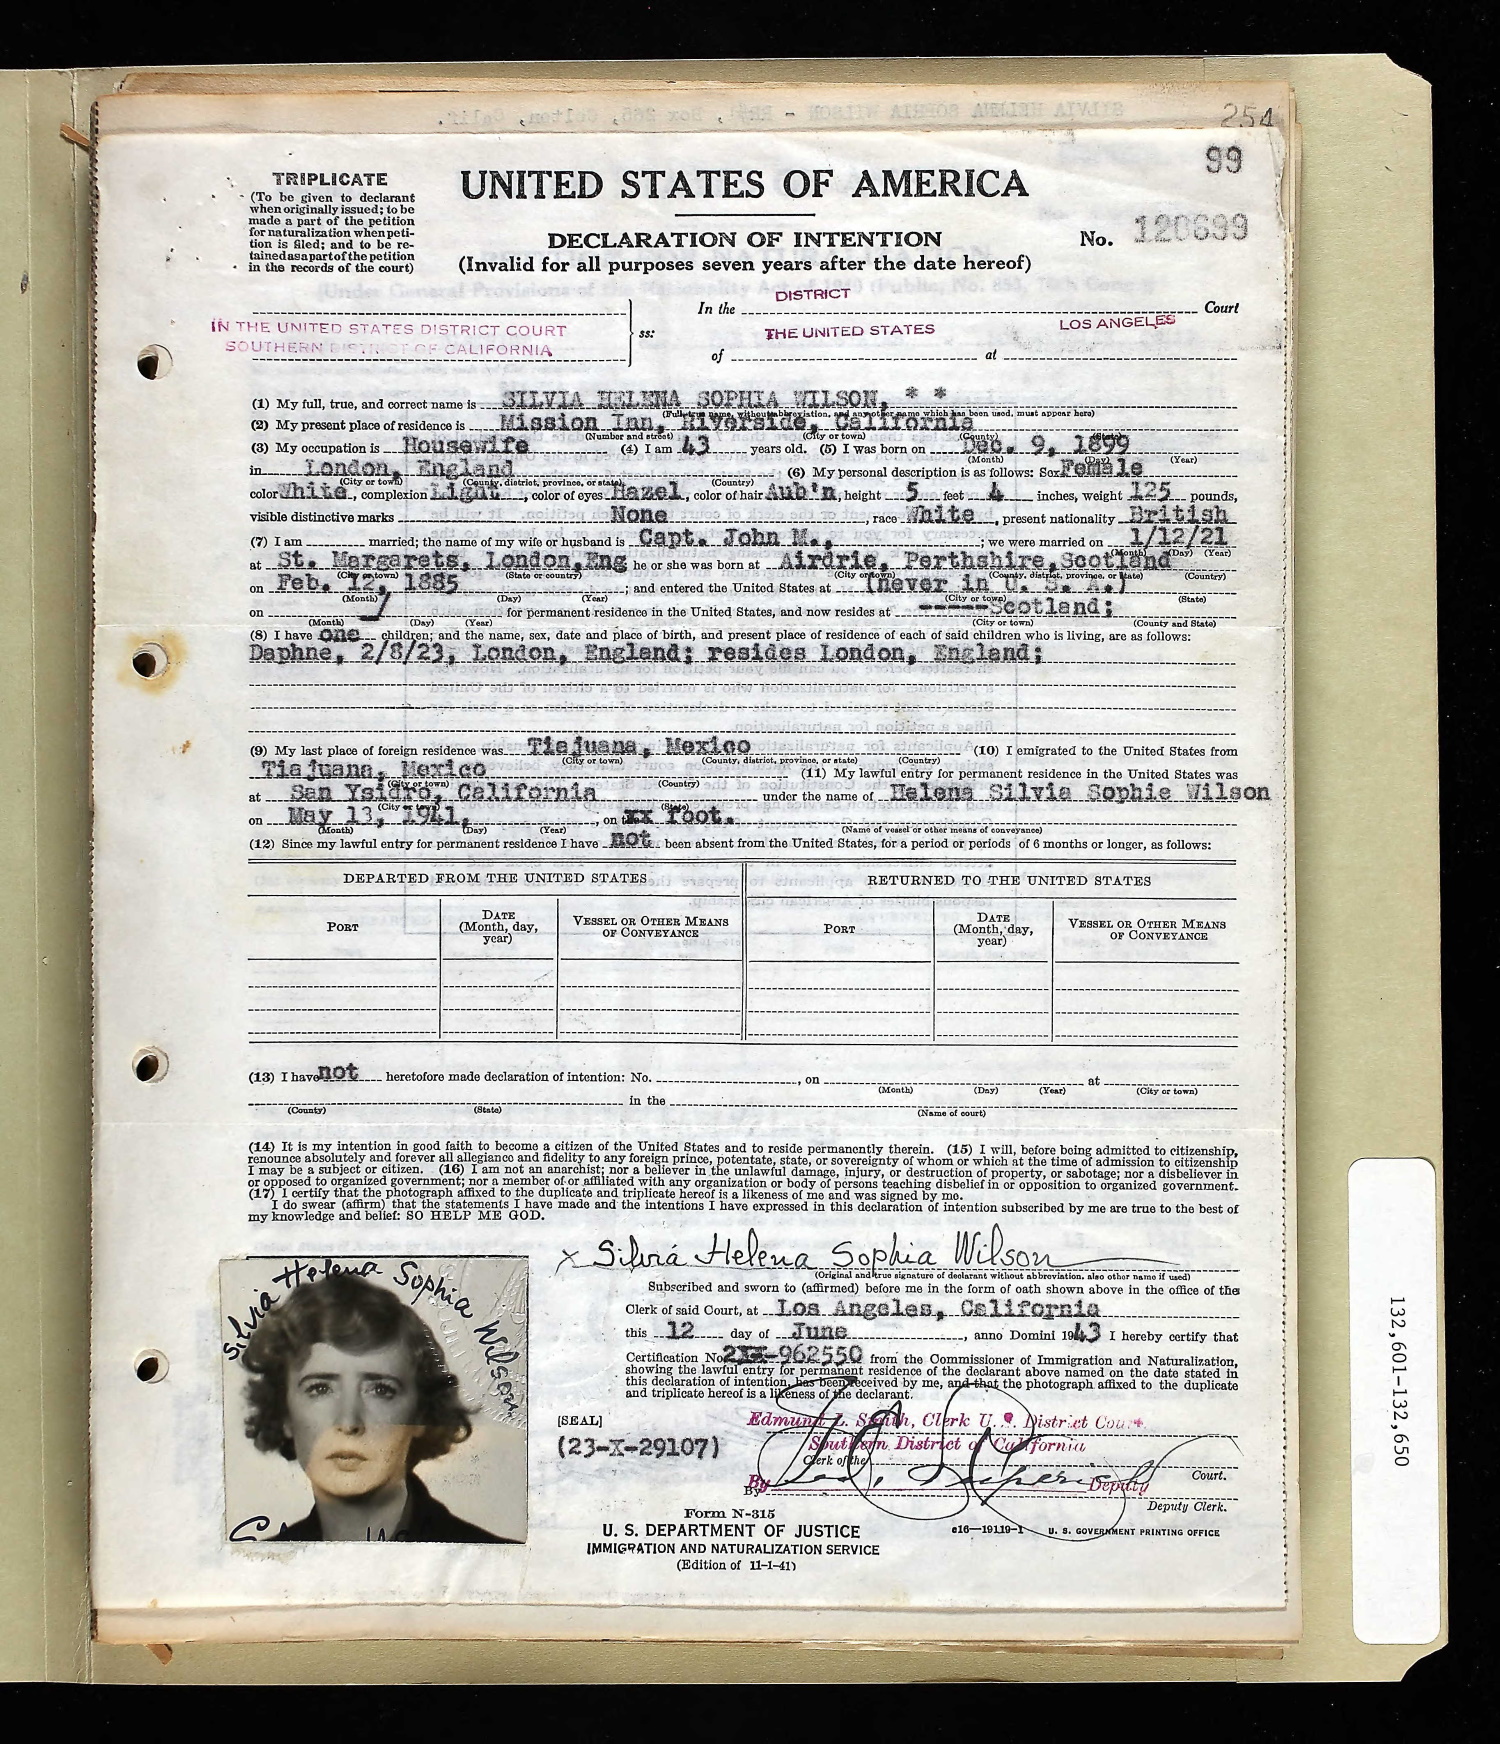 254
99
TRIPLICATE
(To be given to declarant
when originally issued; to be
made a part of the petition
for naturalization when peti-
tion is filed; and to be re-
tained as a part of the petition
in the records of the court)
UNITED STATES OF AMERICA
DECLARATION OF INTENTION
(Invalid for all purposes seven years after the date hereof)
No. 120699
IN THE UNITED STATES DISTRICT COURT
SOUTHERN DISTRICT OF CALIFORNIA
ss:
In the DISTRICT Court
of THE UNITED STATES at LOS ANGELES
(1) My full, true, and correct name is SILVIA HELENA SOPHIA WILSON, * *
(Full, true name, without abbreviation, and any other name which has been used, must appear here)
(2) My present place of residence is Mission Inn, Riverside, California
(Number and street) (City or town) (County) (State)
(3) My occupation is Housewife (4) I am 43 years old. (5) I was born on Dec. 9, 1899
(Month) (Day) (Year)
in London, England (6) My personal description is as follows: Sex Female
(City or town) (County, district, province, or state) (Country)
color White, complexion Light, color of eyes Hazel, color of hair Aub'n, height 5 feet 4 inches, weight 125 pounds,
visible distinctive marks None, race White, present nationality British
(7) I am married; the name of my wife or husband is Capt. John M., ; we were married on 1/12/21
(Month) (Day) (Year)
at St. Margarets, London,Eng he or she was born at Airdrie, Perthshire,Scotland
(City or town) (State or country) (City or town) (County, district, province, or state) (Country)
on Feb. 12, 1885 ; and entered the United States at (never in U. S. A.)
(Month) (Day) (Year) (City or town) (State)
on / for permanent residence in the United States, and now resides at -----Scotland;
(Month) (Day) (Year) (City or town) (County and State)
(8) I have one children; and the name, sex, date and place of birth, and present place of residence of each of said children who is living, are as follows:
Daphne, 2/8/23, London, England; resides London, England;
(9) My last place of foreign residence was Tiajuana, Mexico (10) I emigrated to the United States from
(City or town) (County, district, province, or state) (Country)
Tiajuana, Mexico (11) My lawful entry for permanent residence in the United States was
(City or town) (Country)
at San Ysidro, California under the name of Helena Silvia Sophie Wilson
(City or town) (State)
on May 13, 1941, , on the xx foot.
(Month) (Day) (Year) (Name of vessel or other means of conveyance)
(12) Since my lawful entry for permanent residence I have not been absent from the United States, for a period or periods of 6 months or longer, as follows:
DEPARTED FROM THE UNITED STATES RETURNED TO THE UNITED STATES
PORT DATE (Month, day, year) VESSEL OR OTHER MEANS OF CONVEYANCE PORT DATE (Month, day, year) VESSEL OR OTHER MEANS OF CONVEYANCE
(13) I have not heretofore made declaration of intention: No. , on at
(Month) (Day) (Year) (City or town)
in the
(County) (State) (Name of court)
(14) It is my intention in good faith to become a citizen of the United States and to reside permanently therein. (15) I will, before being admitted to citizenship,
renounce absolutely and forever all allegiance and fidelity to any foreign prince, potentate, state, or sovereignty of whom or which at the time of admission to citizenship
I may be a subject or citizen. (16) I am not an anarchist; nor a believer in the unlawful damage, injury, or destruction of property, or sabotage; nor a disbeliever in
or opposed to organized government; nor a member of or affiliated with any organization or body of persons teaching disbelief in or opposition to organized government.
(17) I certify that the photograph affixed to the duplicate and triplicate hereof is a likeness of me and was signed by me.
I do swear (affirm) that the statements I have made and the intentions I have expressed in this declaration of intention subscribed by me are true to the best of
my knowledge and belief: SO HELP ME GOD.
x Silvia Helena Sophia Wilson
(Original and true signature of declarant without abbreviation, also other name if used)
Silvia Helena Sophia Wilson
Subscribed and sworn to (affirmed) before me in the form of oath shown above in the office of the
Clerk of said Court, at Los Angeles, California
this 12 day of June, anno Domini 1943 I hereby certify that
Certification No. 2XX-962550 from the Commissioner of Immigration and Naturalization,
showing the lawful entry for permanent residence of the declarant above named on the date stated in
this declaration of intention, has been received by me, and that the photograph affixed to the duplicate
and triplicate hereof is a likeness of the declarant.
[SEAL]
(23-X-29107)
Edmund L. Smith, Clerk U. S. District Court
Southern District of California
Clerk of the Court.
By Deputy
By Deputy Clerk.
Form N-315
U. S. DEPARTMENT OF JUSTICE
IMMIGRATION AND NATURALIZATION SERVICE
(Edition of 11-1-41)
c16—19119-1 U. S. GOVERNMENT PRINTING OFFICE
132,601-132,650